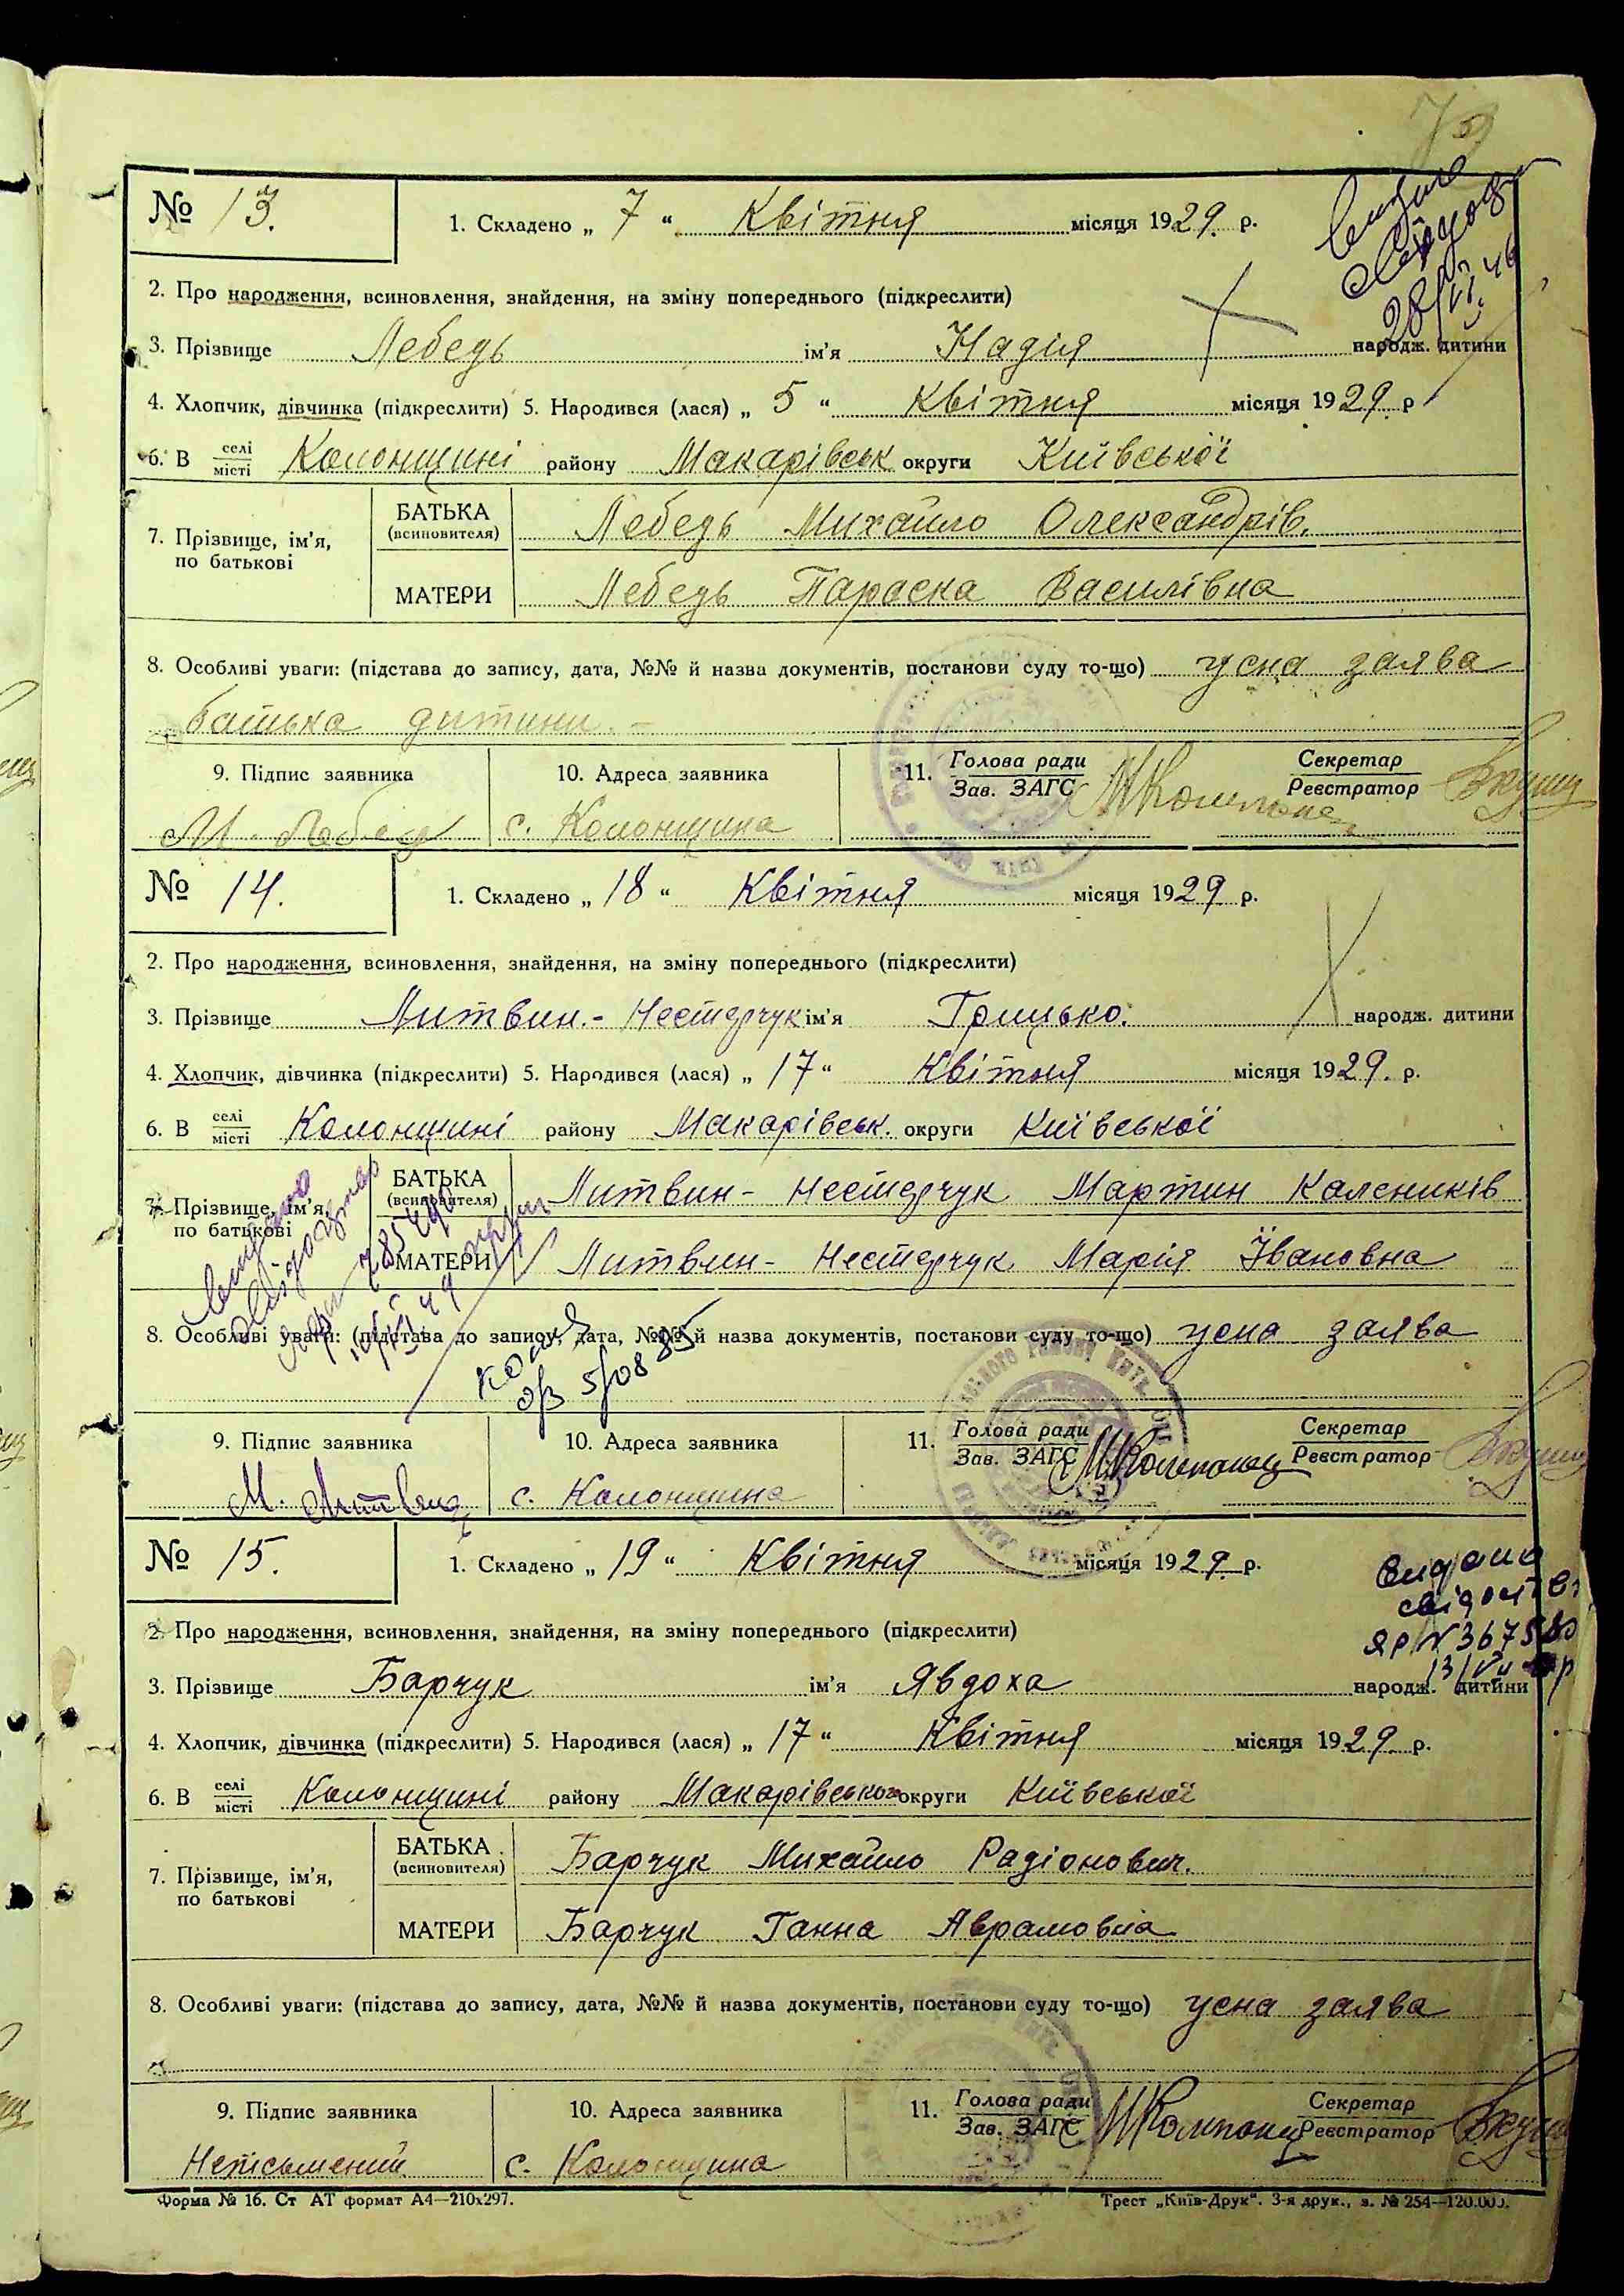 № 13.
1. Складено „ 7 “ Квітня місяця 1929. р.
Видано
28/VI 46
2. Про народження, всиновлення, знайдення, на зміну попереднього (підкреслити)
3. Прізвище Лебедь ім'я Надія народж. дитини
4. Хлопчик, дівчинка (підкреслити) 5. Народився (лася) „ 5 “ Квітня місяця 1929. р
6. В селі/місті Колонщині району Макарівськ округи Київської
7. Прізвище, ім'я, по батькові
БАТЬКА (всиновителя) Лебедь Михайло Олександрів.
МАТЕРИ Лебедь Параска Василівна
8. Особливі уваги: (підстава до запису, дата, №№ й назва документів, постанови суду то-що) усна заява
батька дитини. –
9. Підпис заявника 10. Адреса заявника 11. Голова ради Зав. ЗАГС Секретар Реєстратор
М. Лебедь с. Колонщина
№ 14.
1. Складено „ 18 “ Квітня місяця 1929 р.
2. Про народження, всиновлення, знайдення, на зміну попереднього (підкреслити)
3. Прізвище Литвин.- Нестерчук ім'я Грицько. народж. дитини
4. Хлопчик, дівчинка (підкреслити) 5. Народився (лася) „ 17 “ Квітня місяця 1929. р.
6. В селі/місті Колонщині району Макарівськ. округи Київської
7. Прізвище, ім'я, по батькові
БАТЬКА (всиновителя) Литвин- Нестерчук Мартин Калеників
МАТЕРИ Литвин- Нестерчук Марія Івановна
8. Особливі уваги: (підстава до запису, дата, №№ й назва документів, постанови суду то-що) усна заява
9. Підпис заявника 10. Адреса заявника 11. Голова ради Зав. ЗАГС Секретар Реєстратор
М. Литвин с. Колонщина
№ 15.
1. Складено „ 19 “ Квітня місяця 1929. р.
Видано
2. Про народження, всиновлення, знайдення, на зміну попереднього (підкреслити)
3. Прізвище Барчук ім'я Явдоха народж. дитини
4. Хлопчик, дівчинка (підкреслити) 5. Народився (лася) „ 17 “ Квітня місяця 1929. р.
6. В селі/місті Колонщині району Макарівського округи Київської
7. Прізвище, ім'я, по батькові
БАТЬКА (всиновителя) Барчук Михайло Радіонович.
МАТЕРИ Барчук Ганна Аврамовна
8. Особливі уваги: (підстава до запису, дата, №№ й назва документів, постанови суду то-що) усна заява
9. Підпис заявника 10. Адреса заявника 11. Голова ради Зав. ЗАГС Секретар Реєстратор
Неписьмений с. Колонщина
Форма № 16. Ст АТ формат А4—210х297. Трест „Київ-Друк“. 3-я друк., з. № 254—120.000.